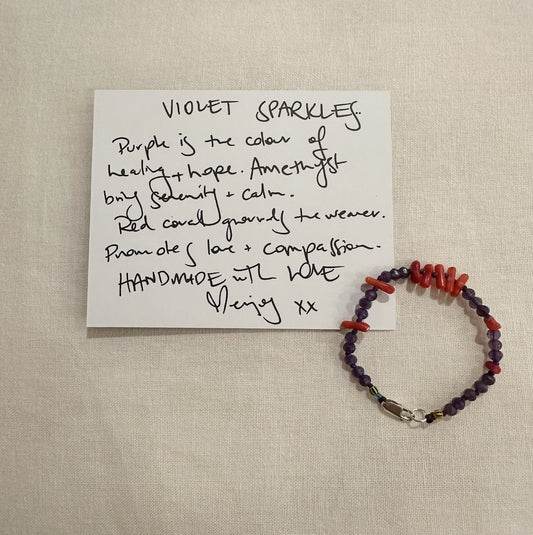 VIOLET SPARKLES.
Purple is the colour of
healing + hope. Amethyst
bring serenity + calm.
Red coral grounds the wearer.
Promotes love + compassion.
HANDMADE with LOVE
xx